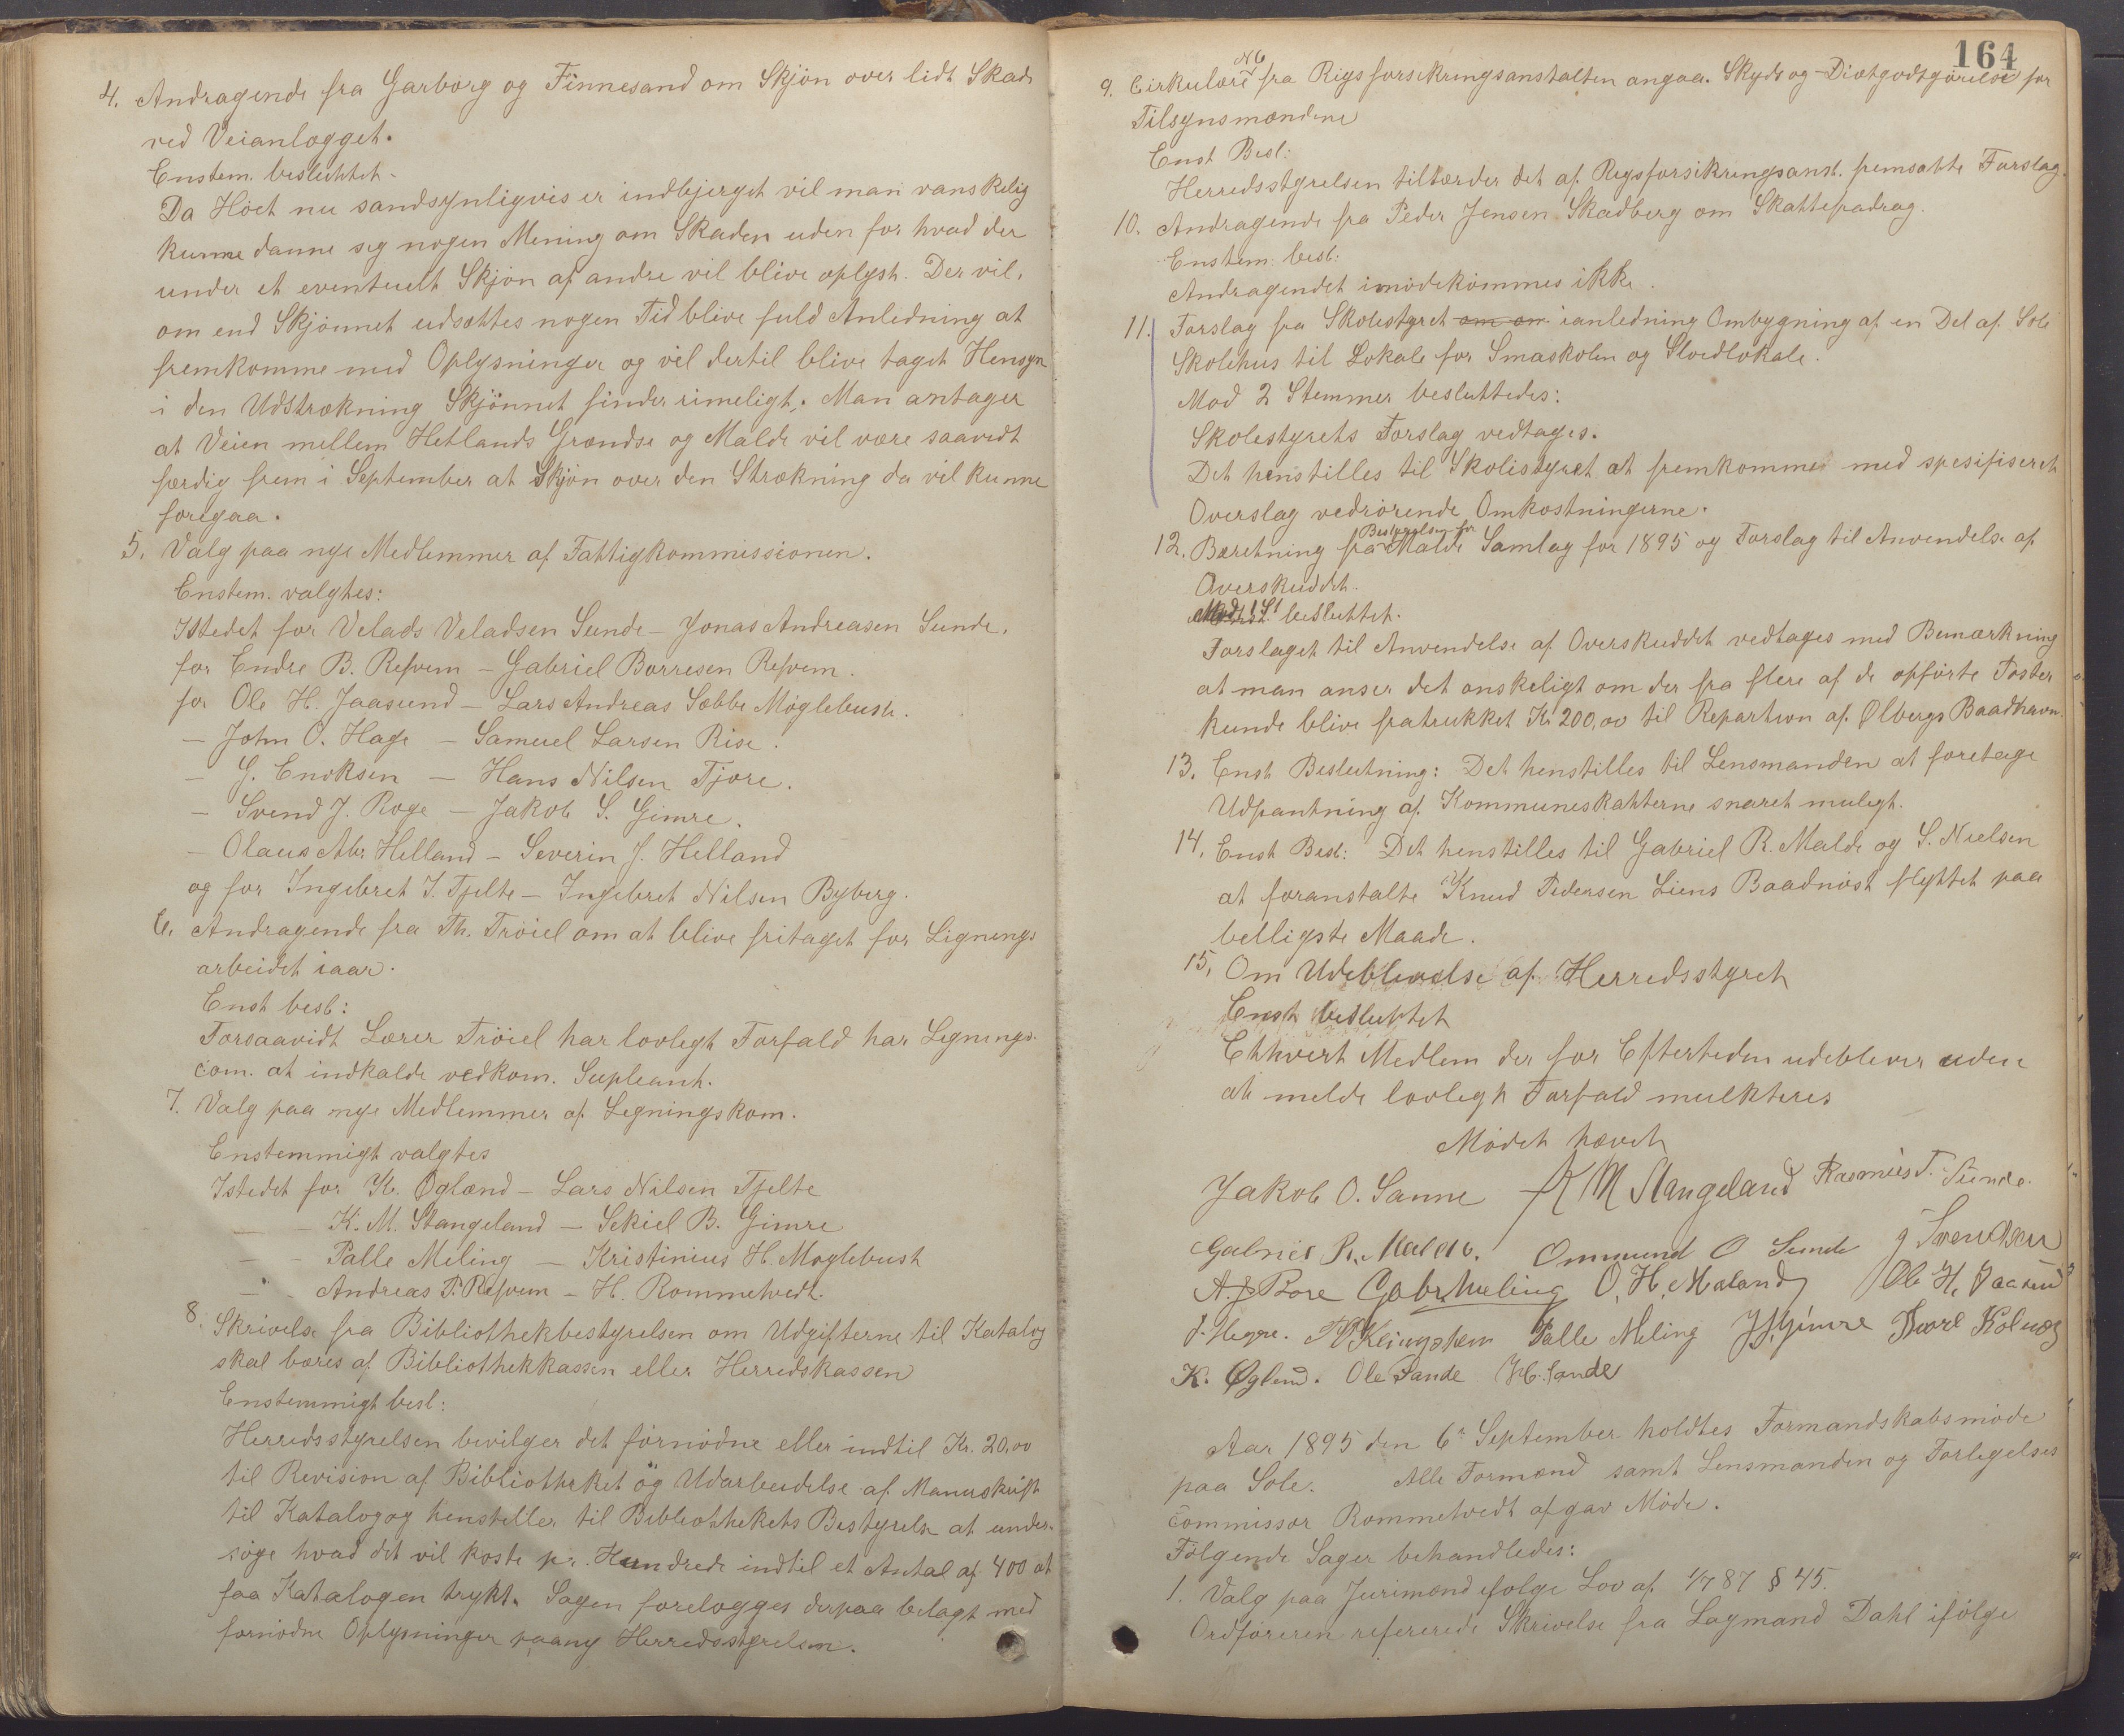 4. Andragende fra Garborg og Finnesand om Skjön over lidt Skade
ved Veianlægget.
Enstem. besluttet.
Da Höet nu sandsynligvis er indbjerget vil man vanskelig
kunne danne sig nogen Mening om Skaden uden for hvad der
under et eventuelt Skjön af andre vil blive oplyst. Der vil,
om end Skjönnet udsættes nogen Tid blive fuld Anledning at
fremkomme med Oplysninger og vil dertil blive taget Hensyn
i den Udstrækning Skjönnet finder rimeligt. Man antager
at Veien mellem Hetlands Grændse og Malde vil være saavidt
færdig frem i September at Skjön over den Strækning da vil kunne
foregaa.
5. Valg paa nye Medlemmer af Fattigkommissionen.
Enstem. valgtes:
Istedet for Velads Veladsen Sunde – Jonas Andreasen Sunde.
for Endre B. Refvem – Gabriel Borresen Refvem.
for Ole H. Jaasund – Lars Andreas Sæbbe Möglebust.
– John O. Hage – Samuel Larsen Rise.
– G. Enoksen – Hans Nilsen Tjore.
– Svend J. Roge – Jakob S. Gimre.
– Olaus Abr. Helland – Severin J. Helland
og for Ingebret I. Tjelte – Ingebret Nilsen Byberg.
6. Andragende fra Th. Tröiel om at blive fritaget for Lignings
arbeidet iaar.
Enst besl:
Forsaavidt Lærer Tröiel har lovlegt Forfald har Lignings-
com. at indkalde vedkom. Supleant.
7. Valg paa nye Medlemmer af Legningskom.
Enstemmigt valgtes
Istedet for K. Øglænd – Lars Nilsen Tjelte
– – K. M. Stangeland – Sekiel B. Gimre
– – Palle Meling – Kristinius H. Moglebust
– – Andreas P. Refvem – H. Rommetvedt.
8. Skrivelse fra Bibliothekbestyrelsen om Udgifterne til Katalog
skal bæres af Bibliothekkassen eller Herredskassen
Enstemmigt besl:
Herredsstyrelsen bevilger det fornödne eller indtil Kr. 20,00
til Revision af Bibliotheket og Udarbeidelse af Manuskript
til Katalog og henstiller til Bibliothekets Bestyrelse at under-
söge hvad det vil koste pr. Hundrede indtil et Antal af 400 at
faa Katalogen trykt. Sagen forelægges derpaa belagt med
fornödne Oplysninger paany Herredsstyrelsen.
164
9. Cirkulære N6 fra Rigsforsikringsanstalten angaa. Skyds og Diætgodtgörelse for
Tilsynsmændene
Enst Besl:
Herredsstyrelsen tiltræder det af Rigsforsikringsanst. fremsatte Forslag.
10. Andragende fra Peder Jensen Skadberg om Skattefradrag.
Enstem: besl:
Andragendet imödekommes ikke.
11. Forslag fra Skolestyret om om ianledning Ombygning af en Del af Sole
Skolehus til Lokale for Smaskolen og Sloidlokale.
Mod 2 Stemmer besluttedes:
Skolestyrets Forslag vedtages.
Det henstilles til Skolestyret at fremkomme med spesifiseret
Overslag vedrörende Omkostningerne.
12. Beretning fra Bestyrelsen for Malde Samlag for 1895 og Forslag til Anvendelse af
Overskuddet.
Mod 1 St. besluttet.
Forslaget til Anvendelse af Overskuddet vedtages med Bemærkning
at man anser det onskeligt om der fra flere af de opförte Poster
kunde blive fratrukket Kr 200,00 til Repartion af Ølbergs Baadhavn.
13. Enst Beslutning: Det henstilles til Lensmanden at foretage
Udpantning af Kommuneskatterne snaret mulegt.
14. Enst Besl: Det henstilles til Gabriel R. Malde og S. Nielsen
at foranstalte Knud Pedersen Liens Baadnöst flyttet paa
belligste Maade.
15. Om Udeblivelse af Herredsstyret
Enst besluttet
Ethvert Medlem der for Eftertiden udeblever uden
at melde lovlegt Forfald mulkteres
Mödet hævet
Jakob O. Sanne K M Stangeland Rasmus T. Sunde.
Gabriel R. Malde. Ommund O Sunde J Svendsen
A. J Bore Gabr. Meling O. H. Maland Ole H. Jaasund
J. Hegre. Palle Meling J. Gimre
K. Øglend. Ole Sande H. Sande
Aar 1895 den 6te September holdtes Formandskabsmöde
paa Sole. Alle Formænd samt Lensmanden og Forlegelses
commissær Rommetvedt afgav Möde.
Fölgende Sager behandledes:
1. Valg paa Jurimænd ifölge Lov af 1/7 87 § 45.
Ordföreren refererede Skrivelse fra Lagmand Dahl ifölge